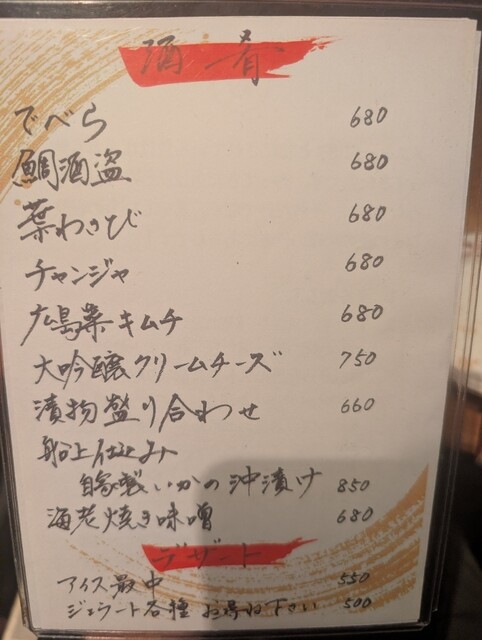 酒肴
でべら 680
鯛酒盗 680
葉わさび 680
チャンジャ 680
広島菜キムチ 680
大吟醸クリームチーズ 750
漬物盛り合わせ 660
船上仕込み
自家製いかの沖漬け 850
海老焼き味噌 680
デザート
アイス最中 550
ジェラート各種 お尋ね下さい 500